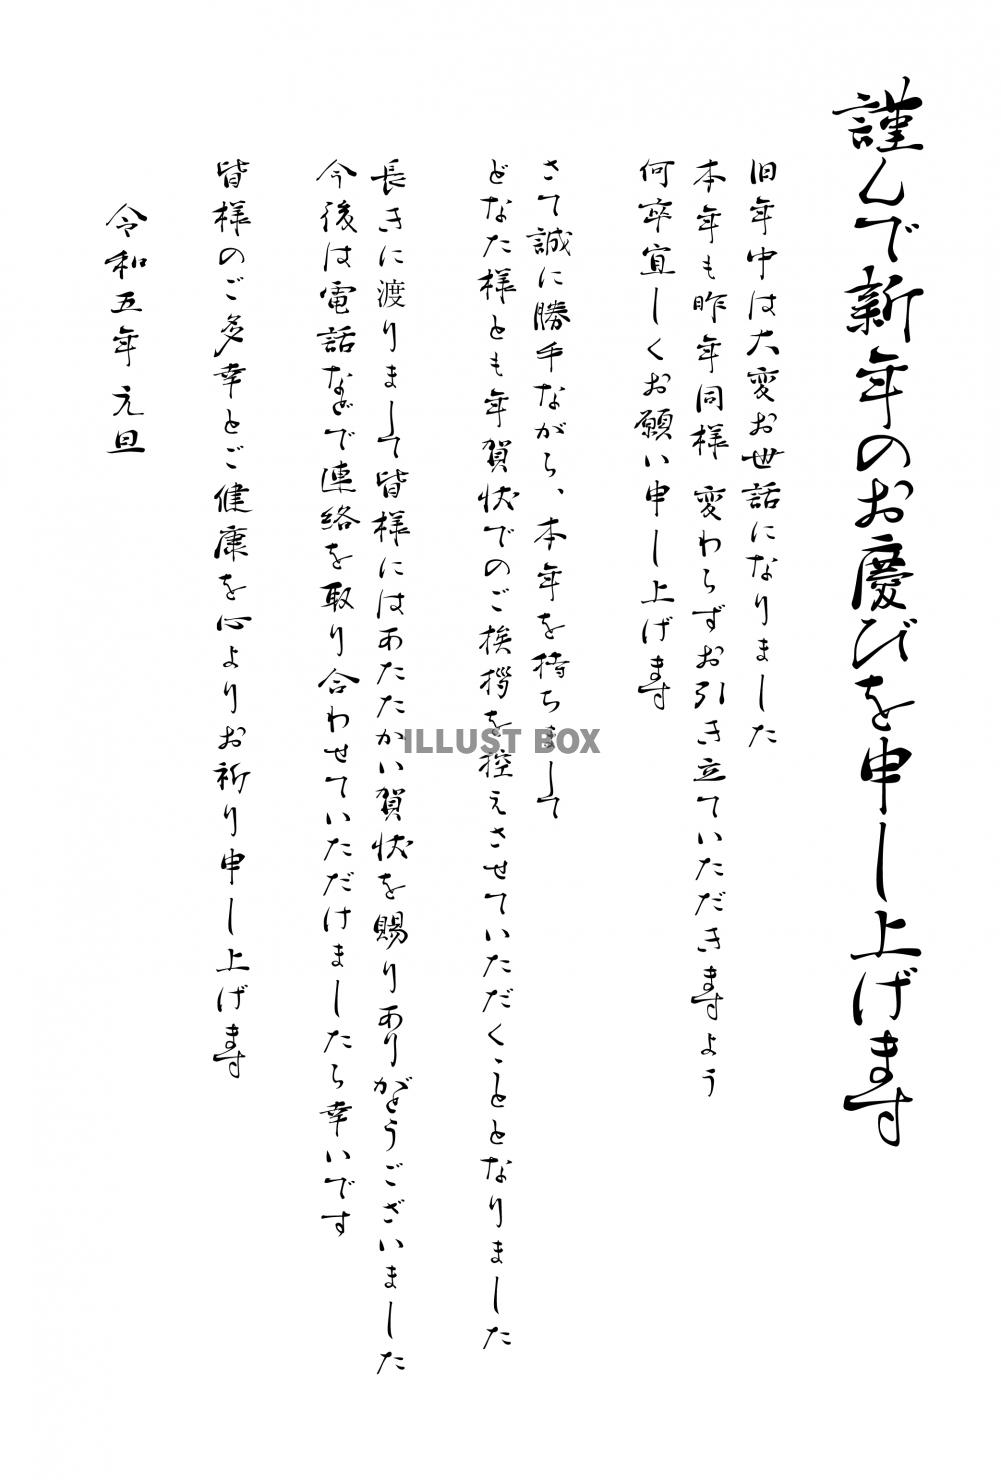 謹んで新年のお慶びを申し上げます
旧年中は大変お世話になりました
本年も昨年同様 変わらずお引き立ていただきますよう
何卒宜しくお願い申し上げます
さて誠に勝手ながら、本年を持ちまして
どなた様とも年賀状でのご挨拶を控えさせていただくこととなりました
長きに渡りまして皆様にはあたたかい賀状を賜りありがとうございました
今後は電話などで連絡を取り合わせていただけましたら幸いです
皆様のご多幸とご健康を心よりお祈り申し上げます
令和五年 元旦
ILLUST BOX